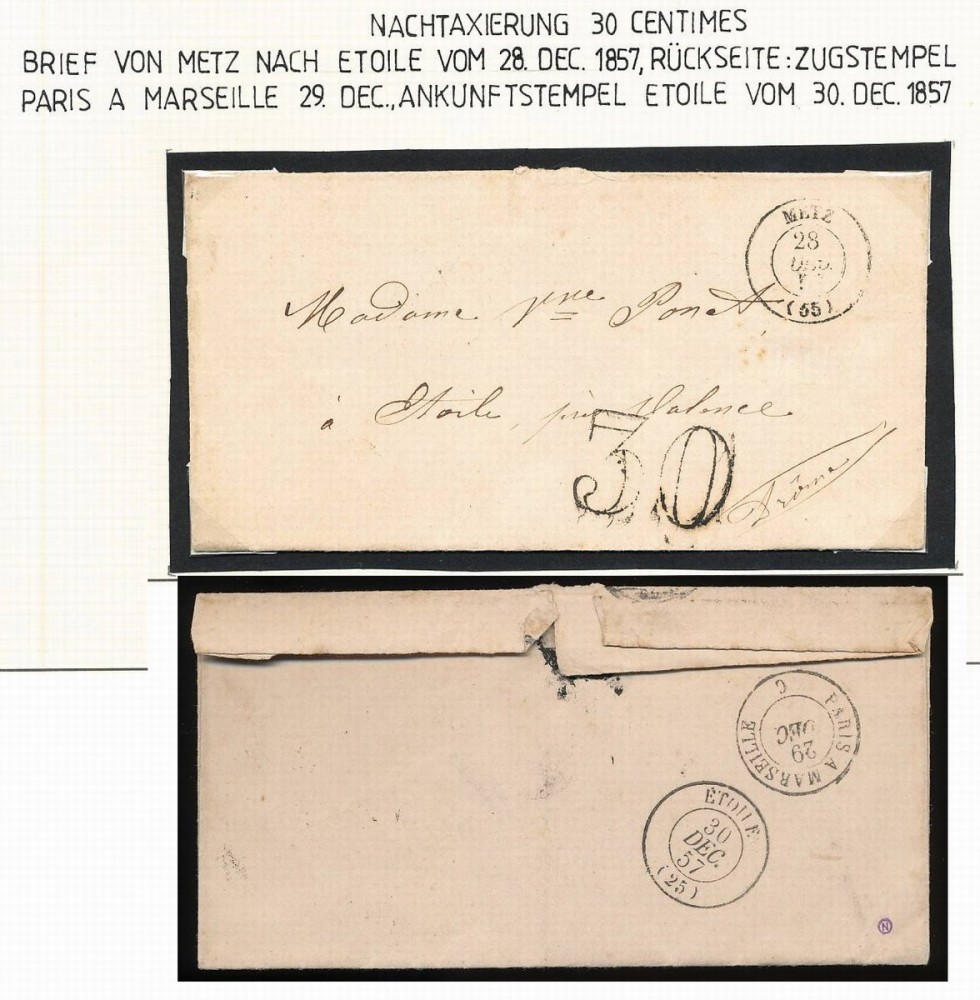 NACHTAXIERUNG 30 CENTIMES
BRIEF VON METZ NACH ETOILE VOM 28. DEC. 1857, RÜCKSEITE: ZUGSTEMPEL
PARIS A MARSEILLE 29. DEC., ANKUNFTSTEMPEL ETOILE VOM 30. DEC. 1857
METZ
28
DEC.
(55)
Madame Vve Ponet
à Etoile, près Valence
30
Drôme
PARIS A MARSEILLE C
29
DEC.
ETOILE
30
DEC.
57
(25)
N